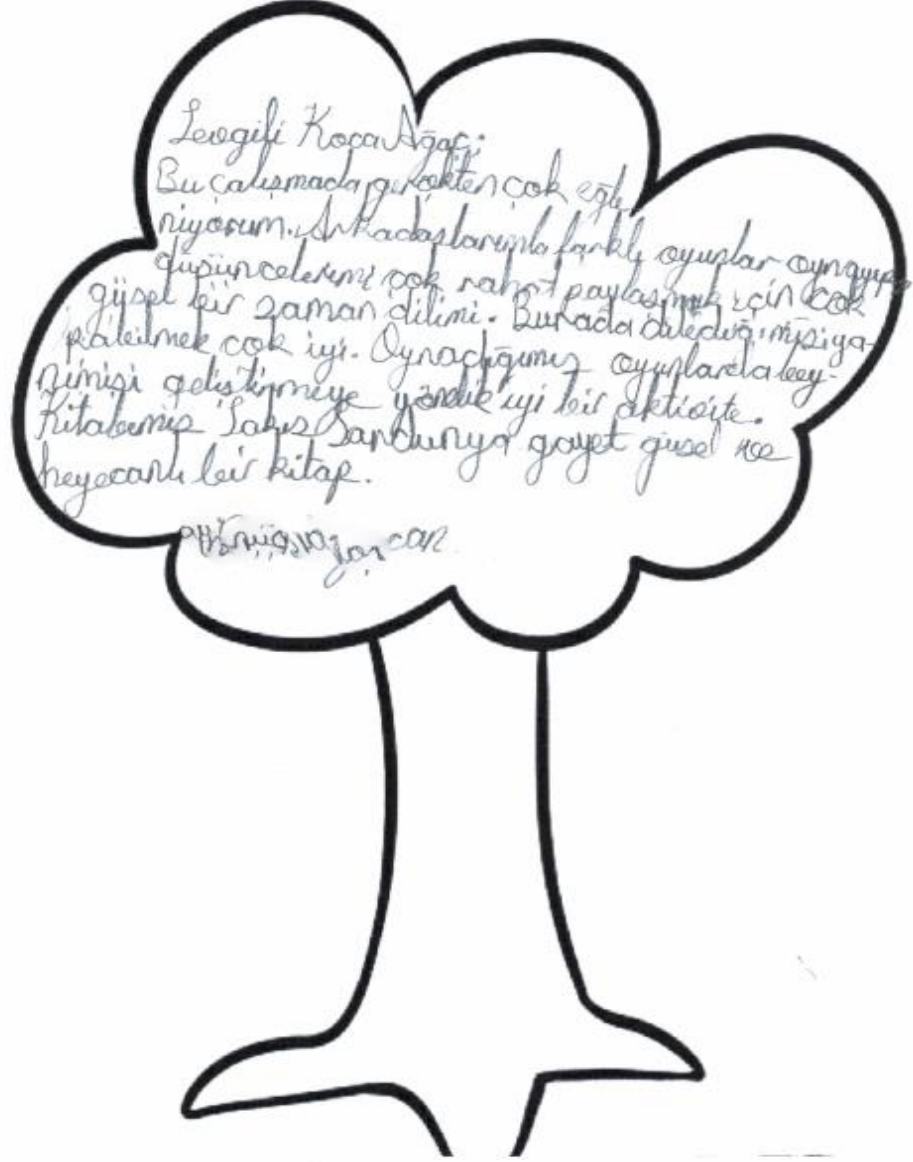 Sevgili Koca Ağaç;
Bu çalışmada gerçekten çok eğle
niyorum. Arkadaşlarımla farklı oyunlar oynayıp
düşüncelerimi çok rahat paylaşmak için çok
güzel bir zaman dilimi. Burada dilediğimizi ya-
pabilmek çok iyi. Oynadığımız oyunlarda bey-
nimizi geliştirmeye yönelik iyi bir aktivite.
Kitabımız Satıs Sardunya gayet güzel ve
heyecanlı bir kitap.
can